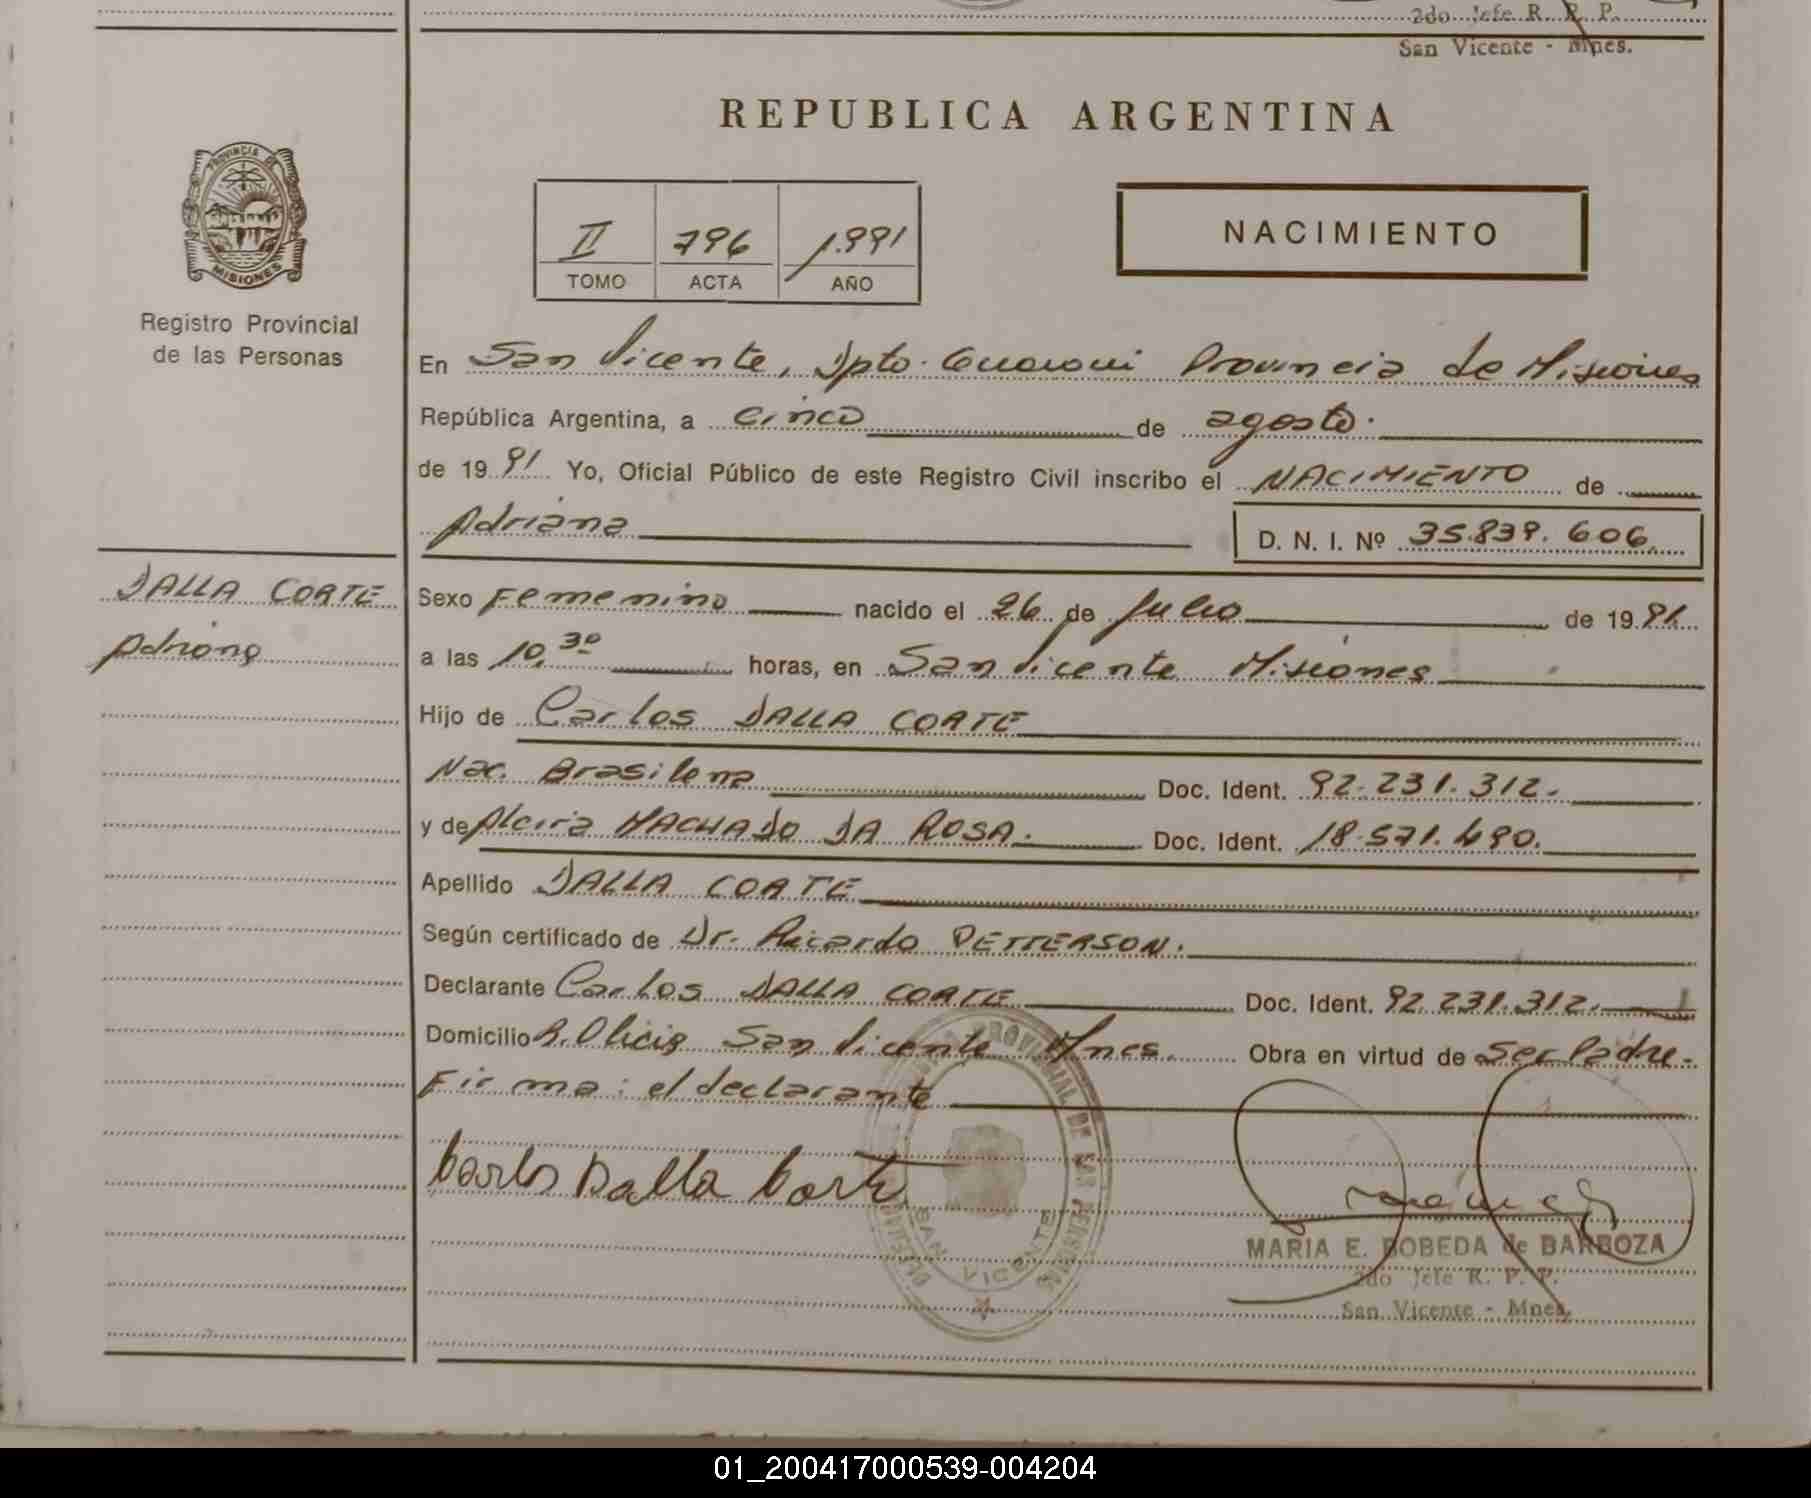 2do Jefe R. P. P.
San Vicente - Mnes.
REPUBLICA ARGENTINA
PROVINCIA DE
MISIONES
Registro Provincial
de las Personas
II 796 1.991
TOMO ACTA AÑO
NACIMIENTO
En San Vicente, Dpto. Guaraní Provincia de Misiones
República Argentina, a cinco de agosto.
de 19 91 Yo, Oficial Público de este Registro Civil inscribo el NACIMIENTO de
Adriana D. N. I. Nº 35.839.606.
DALLA CORTE
Adriana
Sexo Femenino nacido el 26 de Julio de 19 91.
a las 10,30 horas, en San Vicente Misiones
Hijo de Carlos DALLA CORTE
Nac. Brasilena Doc. Ident. 92.231.312.
y de Alcira MACHADO DA ROSA. Doc. Ident. 18.571.490.
Apellido DALLA CORTE
Según certificado de Dr. Ricardo PETTERSON.
Declarante Carlos DALLA CORTE Doc. Ident. 92.231.312.
Domicilio San Vicente Mnes. Obra en virtud de Ser Padre.-
Firma: el declarante
Carlos Dalla Corte
PROVINCIAL DE LAS PERSONAS
SAN VICENTE
MARIA E. BOBEDA de BARBOZA
2do Jefe R. P. P.
San Vicente - Mnes.
01_200417000539-004204